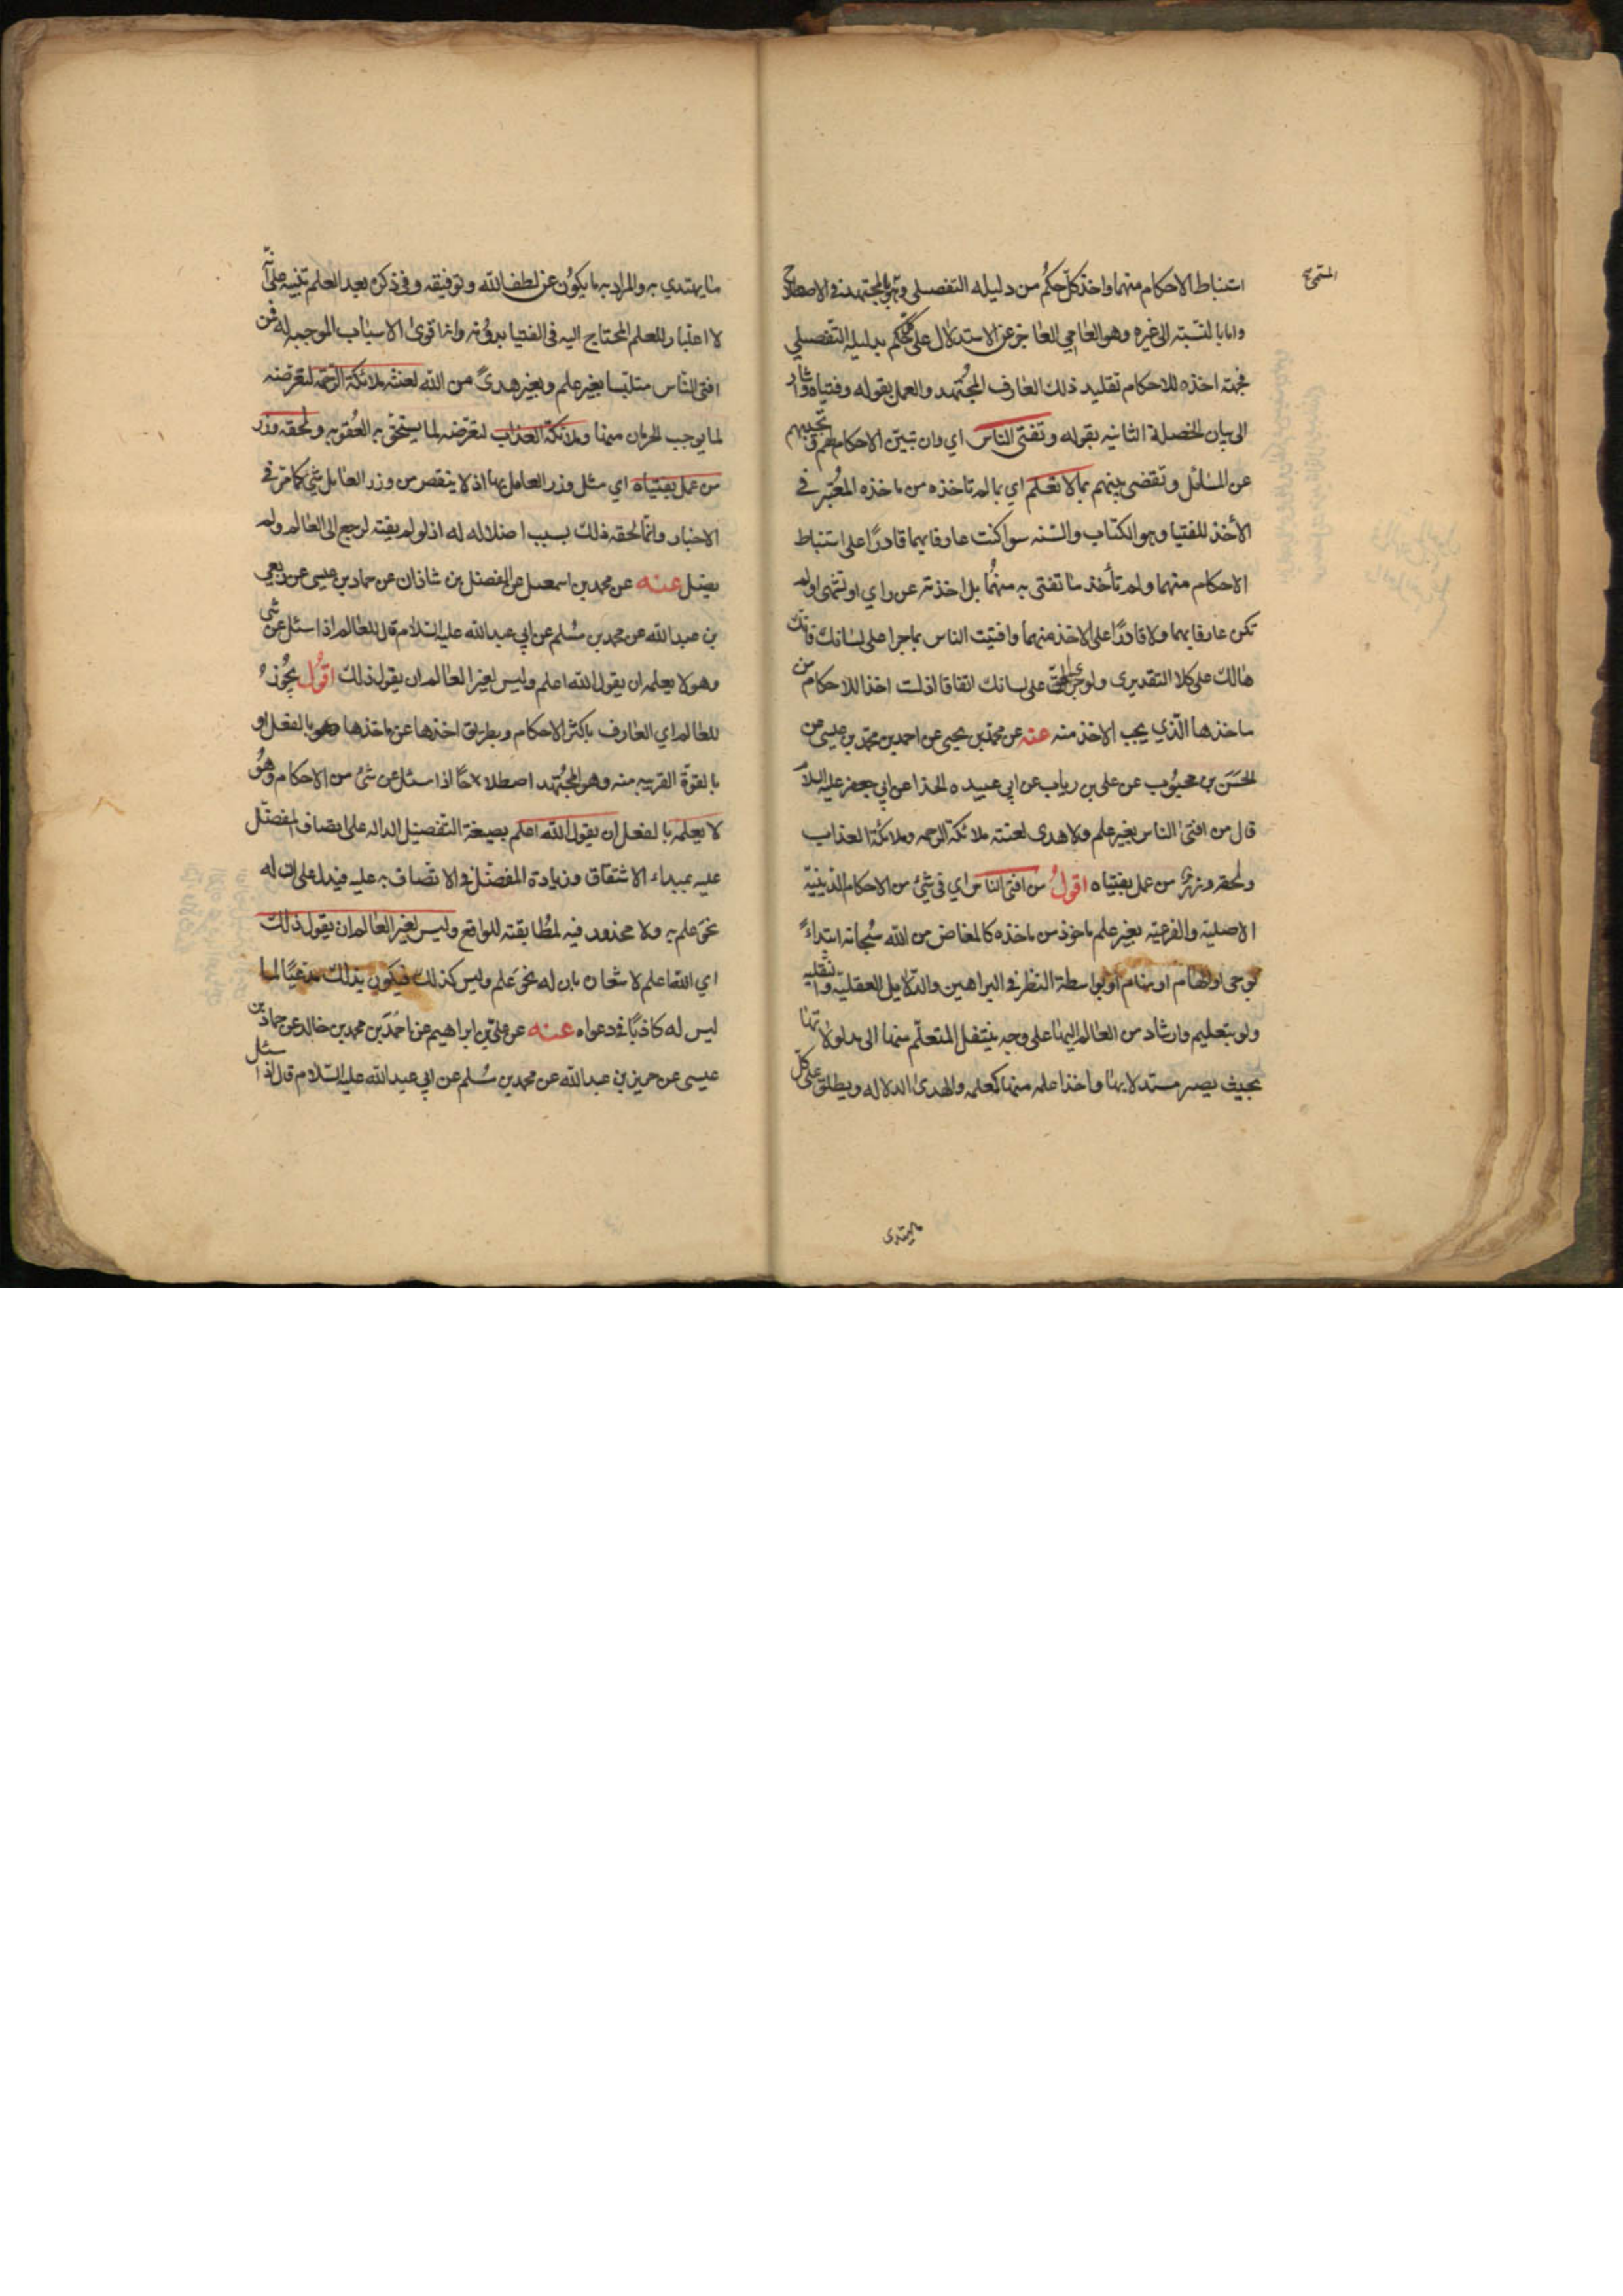 استنباط الاحكام منهما واخذ كلّ حكم من دليله التفصيلي وهو المجتهد في الاصطلاح
واما بالنسبة الى غيره وهو العامي العاجز عن الاستدلال على كل حكم بدليله التفصيلي
فجهة اخذه للاحكام تقليد ذلك العارف المجتهد والعمل بقوله وفتياه واشار
الى بيان الخصلة الثانيه بقوله وتفتى الناس اي وان تبيّن الاحكام لهم وتجيبهم
عن المسائل وتقضى بينهم بما لا تعلم اي بما لم تاخذه من ماخذه المعتبر في
الأخذ للفتيا وهو الكتاب والسّنه سوا كنت عارفا بهما قادرًا على استنباط
الاحكام منهما ولم تأخذ ما تفتى به منهما بل اخذته عن راي او تشهى او لم
تكن عارفا بهما ولا قادرًا على الاخذ منهما وافتيت الناس بما جرا على لسانك فانك
هالك على كلا التقديرى ولو جرى الحق على لسانك اتفاقا اذ لست اخذا للاحكام من
ماخذها الّذي يجب الاخذ منه عنه عن محمّد بن يحيى عن احمد بن محمّد بن عيسى عن
الحسَن بن محبوُب عن على بن رياب عن ابي عبيده الحذا عن ابي جعفر عليه السلام
قال من افتى الناس بغير علم ولا هدى لعنته ملائكة الرحمه وملائكة العذاب
ولحقه وزر من عمل بفتياه اقولُ من افتى الناس اي في شئ من الاحكام الدينيّة
الاصليّه والفرعيّه بغير علم ماخوذ من ماخذه كالمفاض من الله سُبحانه ابتداءً
بوحى او الهام او بمنام او بواسطة النظر في البراهين والدّلايل العقليّه والنّقليه
ولو بتعليم وارشاد من العالم اليها على وجه ينتقل المتعلّم منها الى مدلولاتها
بحيث يصير مستدلا بها واخذا علمه منها كعلمه والهدى الدلاله ويطلق على كلّ
مايهتدى
ما يهتدي به والمراد به ما يكوُن عن لطف الله وتوفيقه وفي ذكره بعد العلم تنبيه على أنّه
لا اعتبار للعلم المحتاج اليه في الفتيا بدوُنه وانه اقوى الاسباب الموجبه له فمن
افتى النّاس متلبّسا بغير علم وبغير هدىً من الله لعنته ملائكة الرّحمة لتعرضه
لما يوجب الحرمان منها وملائكة العذاب لتعرّضه لما يستحق به العُقوبه ولحقه وزر
من عمل بفتياه اي مثل وزر العامل بها اذ لا ينقص من وزر العامل شئ كما مرّ في
الاخبار وانّما لحقه ذلك بسبب اضلاله له اذ لو لم يفته لرجع الى العالم ولم
يضل عنه عن محمد بن اسمعيل عن الفضل بن شاذان عن حماد بن عيسى عن ربعي
بن عبد الله عن محمد بن مُسلم عن ابي عبد الله عليه السّلام قال للعالم اذا سئل عن شئ
وهو لا يعلمه ان يقول الله اعلم وليس لغير العالم ان يقول ذلك اقوُل يجُوز
للعالم اي العارف باكثر الاحكام وبطريق اخذها عن ماخذها وهو بالفعل او
بالقوّة القريبه منه وهو المجُتهد اصطلاحًا اذا سئل عن شئ من الاحكام وهُو
لا يعلمه بالفعل ان يقول الله اعلم بصيغة التّفضيل الداله على اتصاف المفضّل
عليه بمبداء الاشتقاق وزيادة المفضّل في الاتصاف به عليه فيدل على ان له
نحوَ علم به ولا محذور فيه لمُطابقته للواقع وليس لغير العالم ان يقول ذلك
اي الله اعلم لاشعاره بان له نحوَ علم وليس كذلك فيكون بذلك مدّعيًا لما
ليس له كاذبًا في دعواه عنه عن علي بن ابراهيم عن احمَد بن محمد بن خالد عن حماد بن
عيسى عن حريز بن عبد الله عن محمد بن مُسلم عن ابي عبد الله عليه السّلام قال اذا سئل